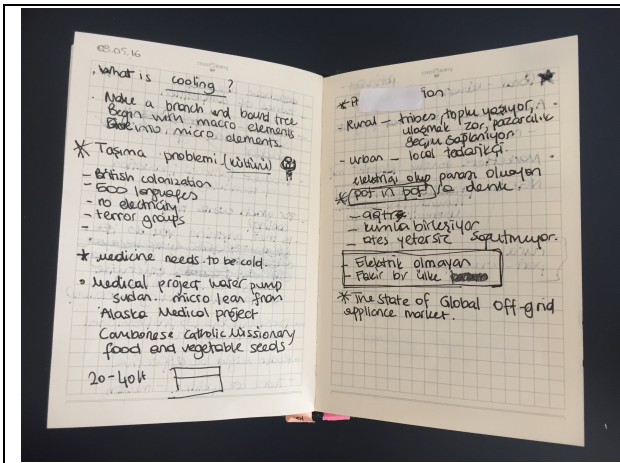 03.05.16
. What is cooling ?
. Make a branch and bound tree
Begin with macro elements
into micro elements.
* Taşıma problemi (kültürü)
- British colonization
- 500 languages
- no electricity
- terror groups
-
* medicine needs to be cold.
• Medical project water pump
sudan. micro lean from
Alaska Medical project
Combonese Catholic Missionary
food and vegetable seeds
20-40lt
* A ion
- Rural - tribes, toplu yaşıyor,
ulaşmak zor, pazarcılık
geçim sağlanıyor
- urban - local tedarikçi.
elektriği olup parası olmayan
* pot in pot 'a denk
- ağır
- kumla birleşiyor
- ates yetersiz soğutmuyor.
- Elektrik olmayan
- Fakir bir ülke
* The state of Global off-grid
appliance market.